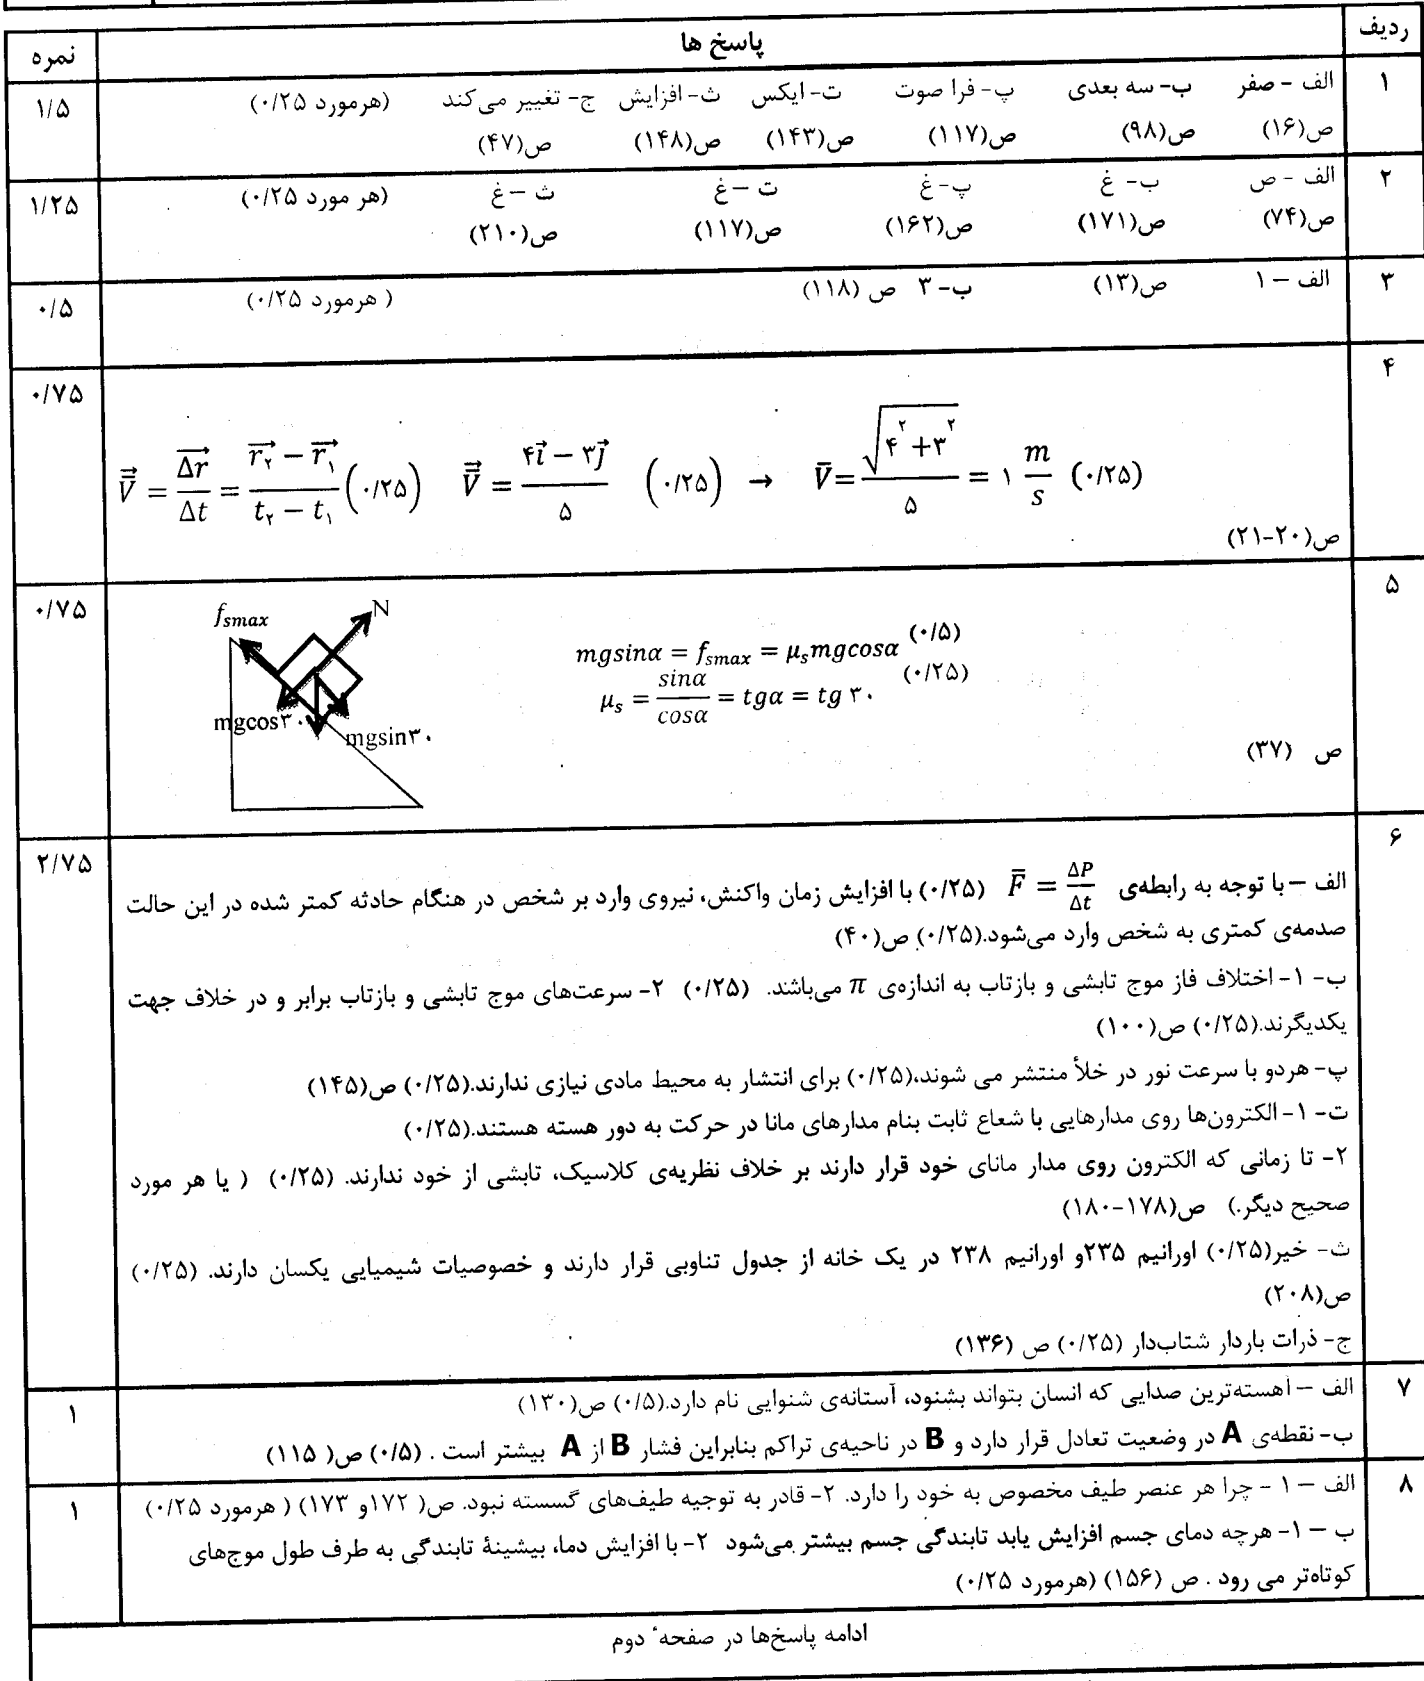 ردیف	پاسخ ها	نمره
۱	الف - صفر	ب- سه بعدی	پ- فرا صوت	ت- ایکس	ث- افزایش	ج- تغییر می کند	(هرمورد ۰/۲۵)	۱/۵
ص(۱۶)	ص(۹۸)	ص(۱۱۷)	ص(۱۴۳)	ص(۱۴۸)	ص(۴۷)
۲	الف - ص	ب- غ	پ- غ	ت – غ	ث – غ	(هر مورد ۰/۲۵)	۱/۲۵
ص(۷۴)	ص(۱۷۱)	ص(۱۶۲)	ص(۱۱۷)	ص(۲۱۰)
۳	الف – ۱	ص(۱۳)	ب- ۳ ص (۱۱۸)	( هرمورد ۰/۲۵)	۰/۵
۴	۰/۷۵
$\vec{\bar{V}} = \frac{\overrightarrow{\Delta r}}{\Delta t} = \frac{\overrightarrow{r_۲} - \overrightarrow{r_۱}}{t_۲ - t_۱}$ (۰/۲۵) $\vec{\bar{V}} = \frac{۴\vec{i} - ۳\vec{j}}{۵}$ (۰/۲۵) → $\bar{V} = \frac{\sqrt{۴^۲ + ۳^۲}}{۵} = ۱ \frac{m}{s}$ (۰/۲۵)
ص(۲۰-۲۱)
۵	۰/۷۵
$f_{smax}$	N
mgcos۳۰	mgsin۳۰
$mgsinα = f_{smax} = μ_s mgcosα$ (۰/۵)
$μ_s = \frac{sinα}{cosα} = tgα = tg ۳۰$ (۰/۲۵)
ص (۳۷)
۶	۲/۷۵
الف – با توجه به رابطه‌ی $\bar{F} = \frac{ΔP}{Δt}$ (۰/۲۵) با افزایش زمان واکنش، نیروی وارد بر شخص در هنگام حادثه کمتر شده در این حالت
صدمه‌ی کمتری به شخص وارد می‌شود.(۰/۲۵) ص(۴۰)
ب- ۱- اختلاف فاز موج تابشی و بازتاب به اندازه‌ی π می‌باشند. (۰/۲۵) ۲- سرعت‌های موج تابشی و بازتاب برابر و در خلاف جهت
یکدیگرند.(۰/۲۵) ص(۱۰۰)
پ- هردو با سرعت نور در خلأ منتشر می شوند،(۰/۲۵) برای انتشار به محیط مادی نیازی ندارند.(۰/۲۵) ص(۱۴۵)
ت- ۱- الکترون‌ها روی مدارهایی با شعاع ثابت بنام مدارهای مانا در حرکت به دور هسته هستند.(۰/۲۵)
۲- تا زمانی که الکترون روی مدار مانای خود قرار دارند بر خلاف نظریه‌ی کلاسیک، تابشی از خود ندارند. (۰/۲۵) ( یا هر مورد
صحیح دیگر.) ص(۱۷۸-۱۸۰)
ث- خیر(۰/۲۵) اورانیم ۲۳۵و اورانیم ۲۳۸ در یک خانه از جدول تناوبی قرار دارند و خصوصیات شیمیایی یکسان دارند. (۰/۲۵)
ص(۲۰۸)
ج- ذرات باردار شتاب‌دار (۰/۲۵) ص (۱۳۶)
۷	الف – آهسته‌ترین صدایی که انسان بتواند بشنود، آستانه‌ی شنوایی نام دارد.(۰/۵) ص(۱۳۰)	۱
ب- نقطه‌ی A در وضعیت تعادل قرار دارد و B در ناحیه‌ی تراکم بنابراین فشار B از A بیشتر است . (۰/۵) ص( ۱۱۵)
۸	الف – ۱ - چرا هر عنصر طیف مخصوص به خود را دارد. ۲- قادر به توجیه طیف‌های گسسته نبود. ص( ۱۷۲و ۱۷۳) ( هرمورد ۰/۲۵)	۱
ب – ۱- هرچه دمای جسم افزایش یابد تابندگی جسم بیشتر می‌شود ۲- با افزایش دما، بیشینهٔ تابندگی به طرف طول موج‌های
کوتاه‌تر می رود . ص (۱۵۶) (هرمورد ۰/۲۵)
ادامه پاسخ‌ها در صفحهٔ دوم